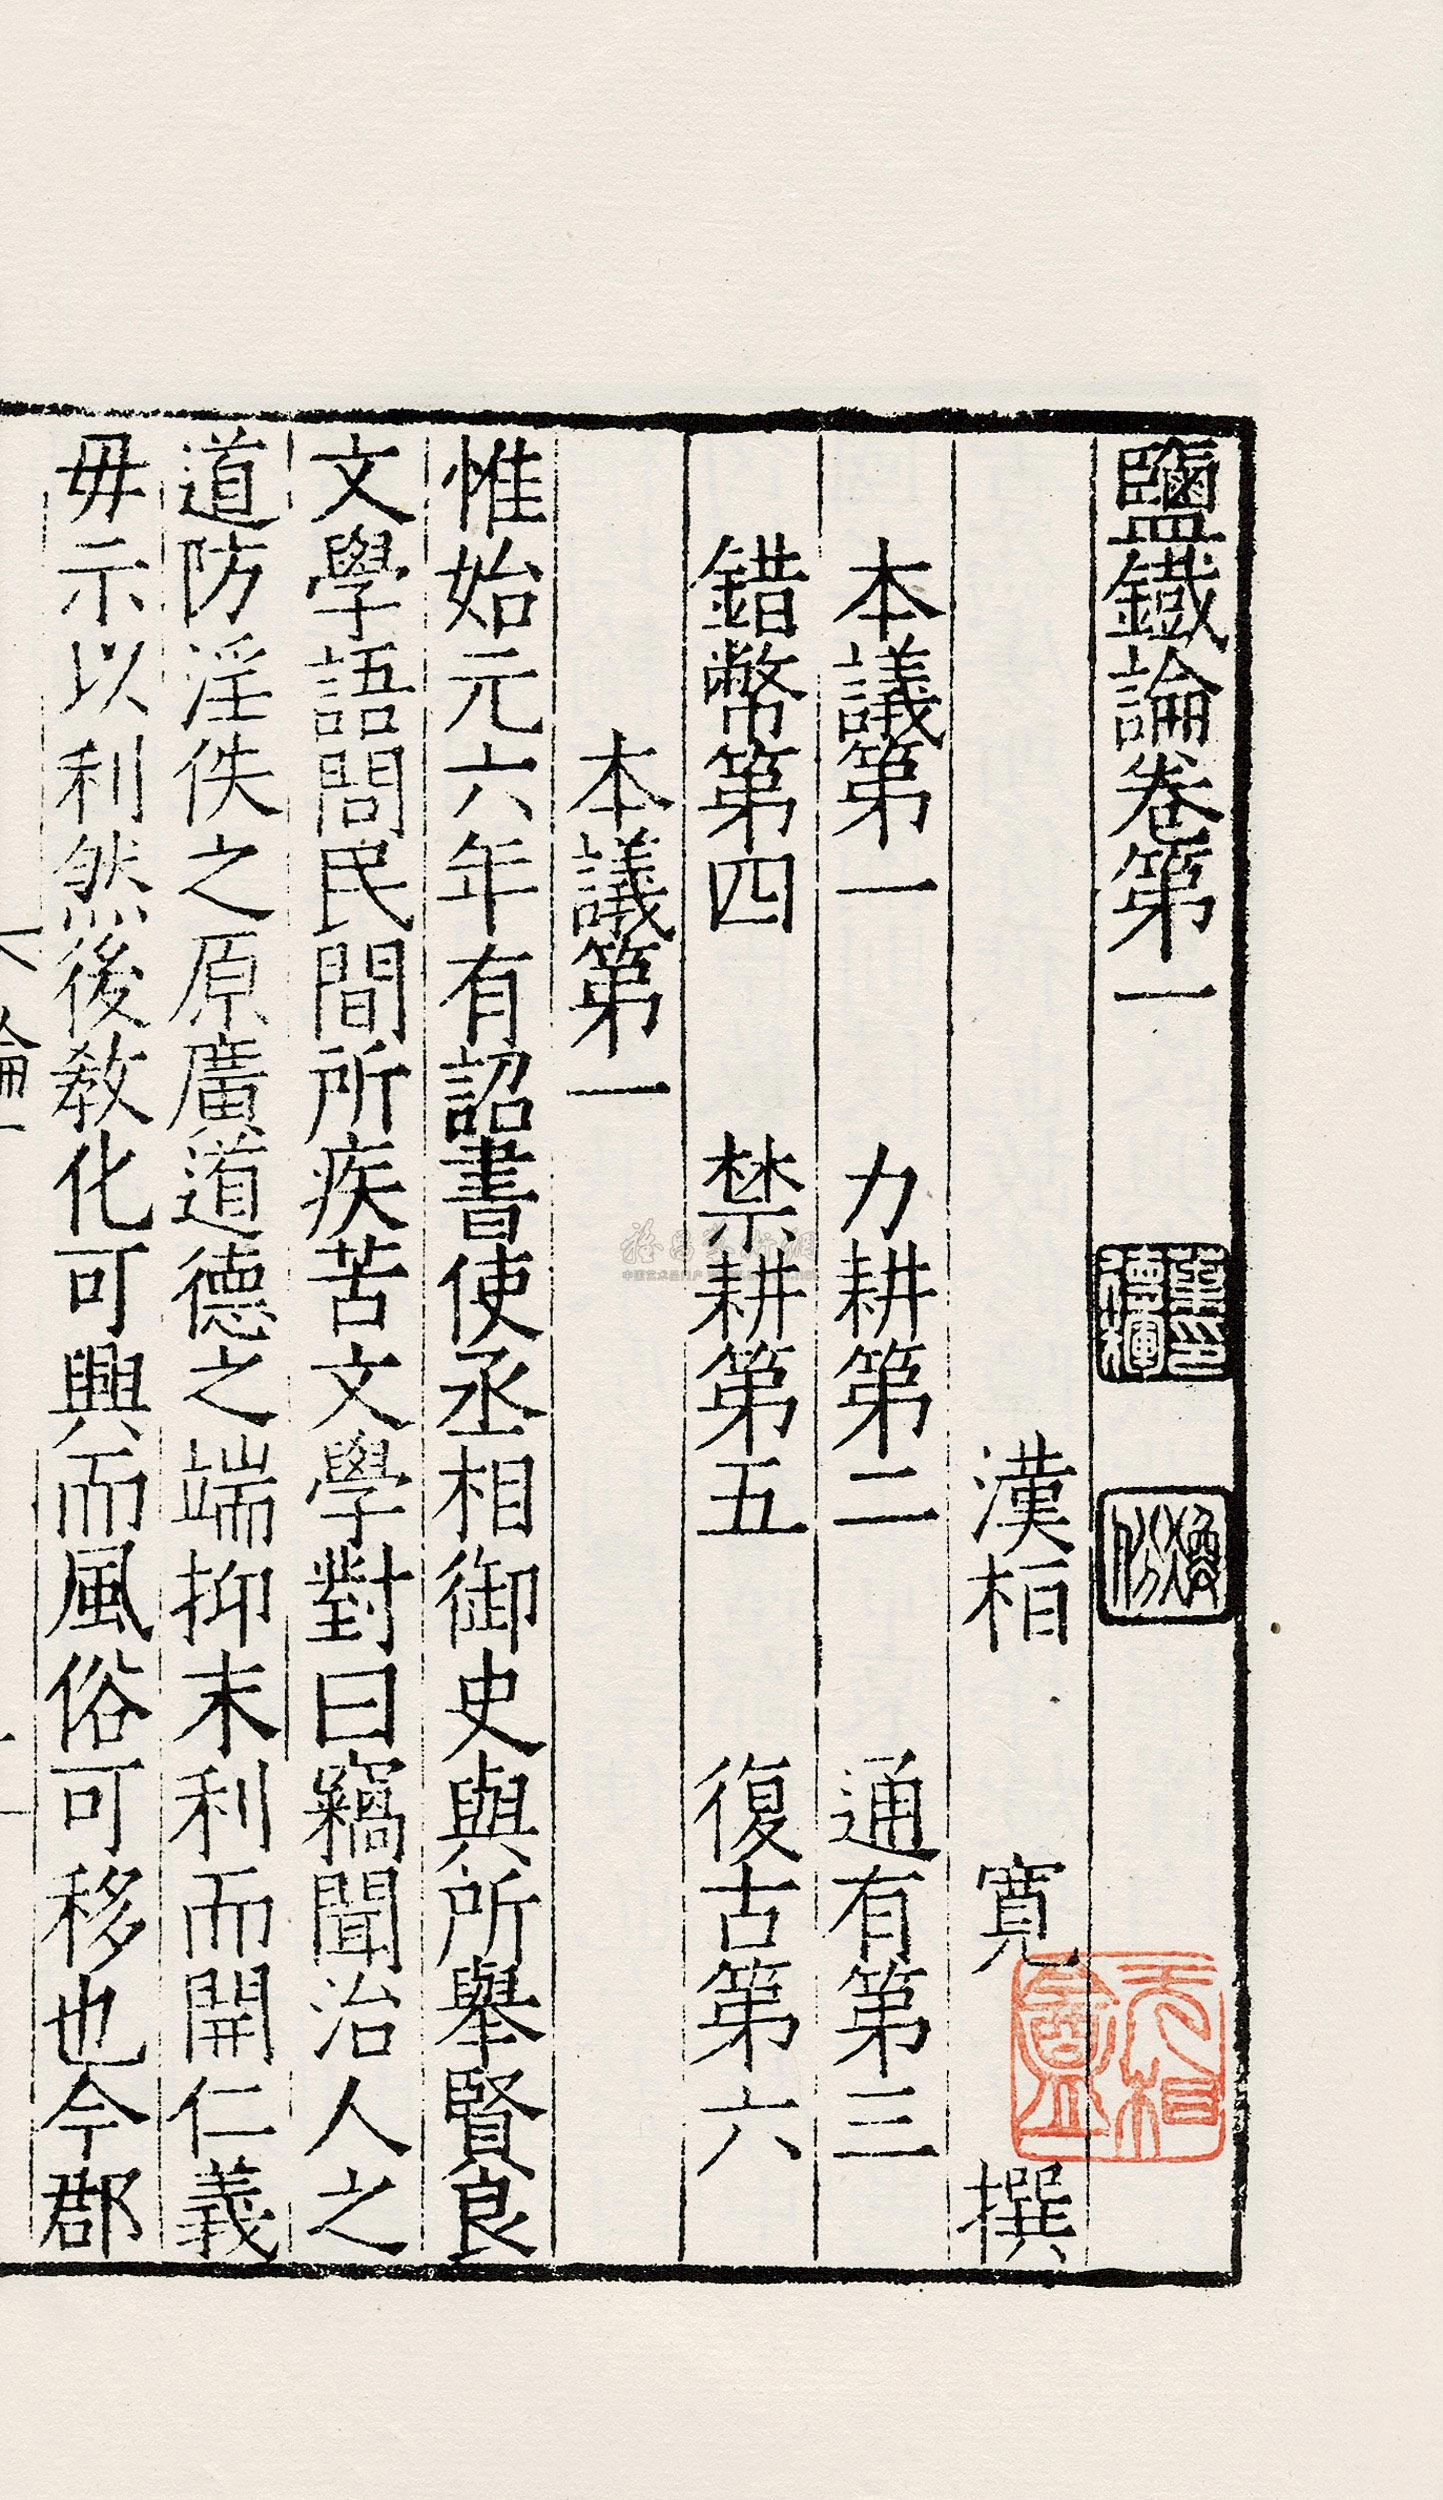 鹽鐵論卷第一
漢 桓 寬 撰
本議第一 力耕第二 通有第三
錯幣第四 禁耕第五 復古第六
本議第一
惟始元六年有詔書使丞相御史與所舉賢良
文學語問民間所疾苦文學對曰竊聞治人之
道防淫佚之原廣道德之端抑末利而開仁義
毋示以利然後教化可興而風俗可移也今郡